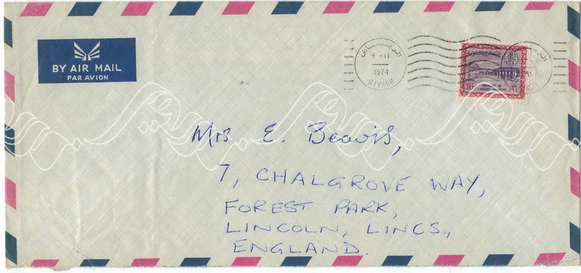 BY AIR MAIL
PAR AVION
1974
RIYADH
Mrs E. Beavis,
7, CHALGROVE WAY,
FOREST PARK,
LINCOLN, LINCS,
ENGLAND.